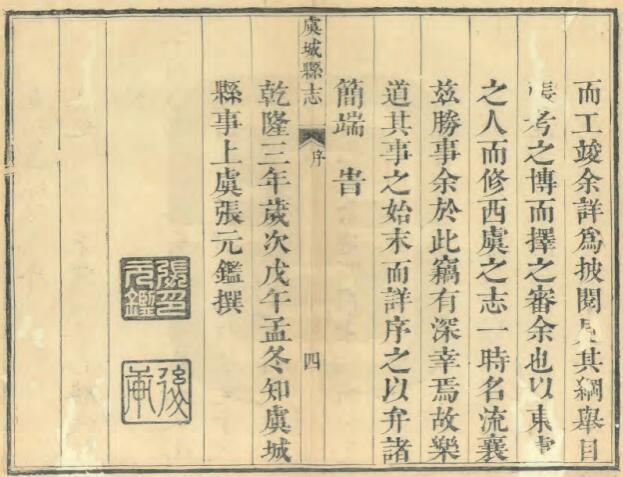 而工竣余詳爲披閱見其綱舉目
張考之博而擇之審余也以東虞
之人而修西虞之志一時名流襄
茲勝事余於此竊有深幸焉故樂
道其事之始末而詳序之以弁諸
簡端 旹
虞城縣志 序 四
乾隆三年歲次戊午孟冬知虞城
縣事上虞張元鑑撰
張印元鑑